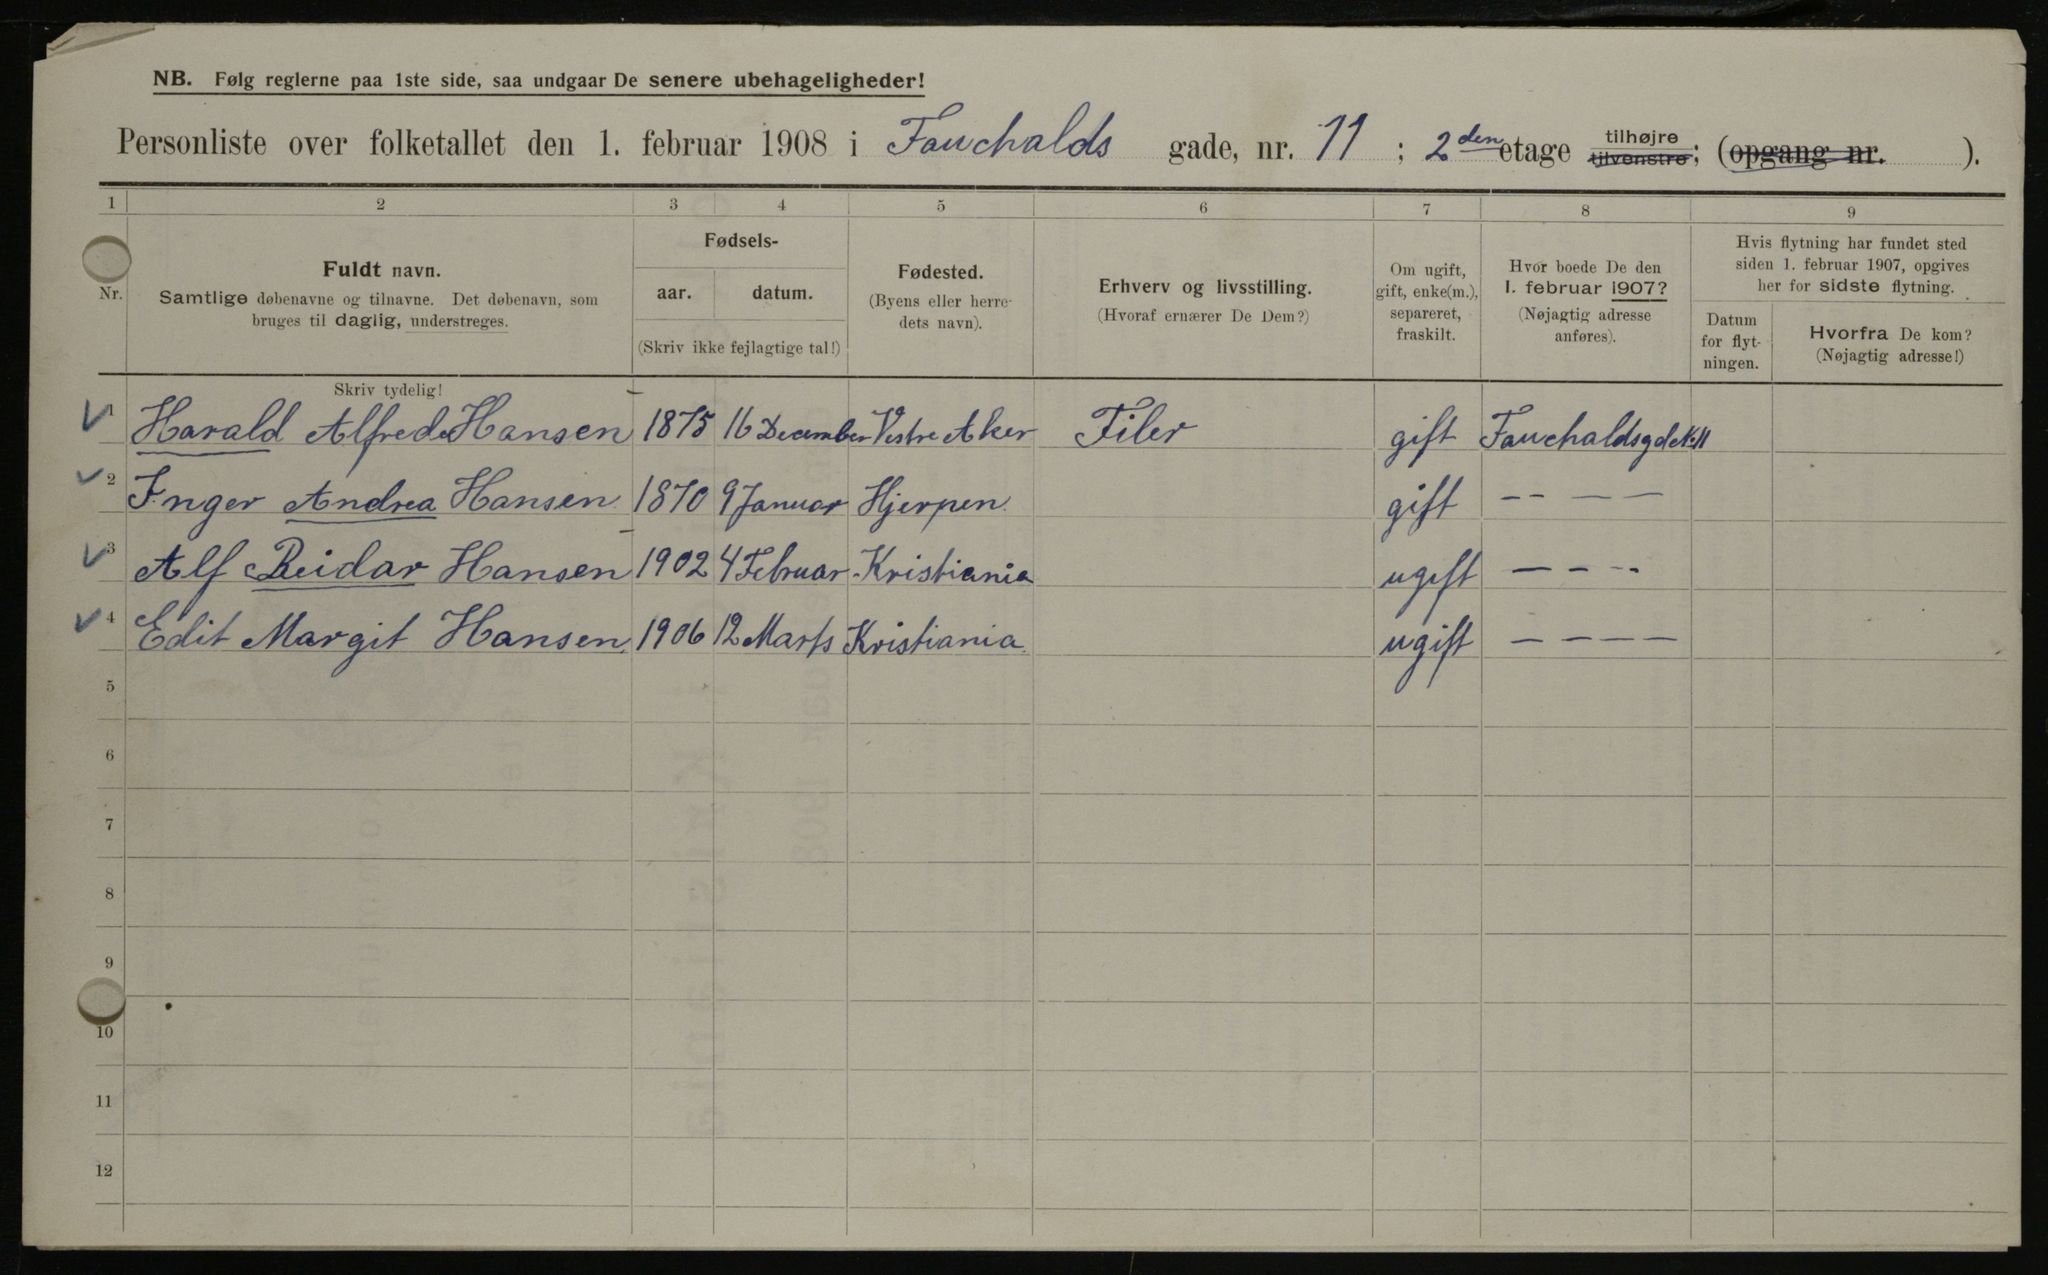 NB. Følg reglerne paa 1ste side, saa undgaar De senere ubehageligheder!
Personliste over folketallet den 1. februar 1908 i Fauchalds gade, nr. 11 ; 2den etage tilhøjre tilvenstre; (opgang nr. ).
1 2 3 4 5 6 7 8 9
Nr.
Fuldt navn.
Samtlige døbenavne og tilnavne. Det døbenavn, som
bruges til daglig, understreges.
Fødsels-
aar. datum.
(Skriv ikke fejlagtige tal!)
Fødested.
(Byens eller herre-
dets navn).
Erhverv og livsstilling.
(Hvoraf ernærer De Dem?)
Om ugift,
gift, enke(m.),
separeret,
fraskilt.
Hvor boede De den
1. februar 1907?
(Nøjagtig adresse
anføres).
Hvis flytning har fundet sted
siden 1. februar 1907, opgives
her for sidste flytning.
Datum
for flyt-
ningen.
Hvorfra De kom?
(Nøjagtig adresse!)
Skriv tydelig!
1 Harald Alfred Hansen 1875 16 December Vestre Aker Filer gift Fauchaldsgd No 11
2 Inger Andrea Hansen 1870 9 Januar Hjerpen gift -- — —
3 Alf Reidar Hansen 1902 4 Februar Kristiania ugift — - --
4 Edit Margit Hansen 1906 12 Marts Kristiania ugift — — — —
5
6
7
8
9
10
11
12